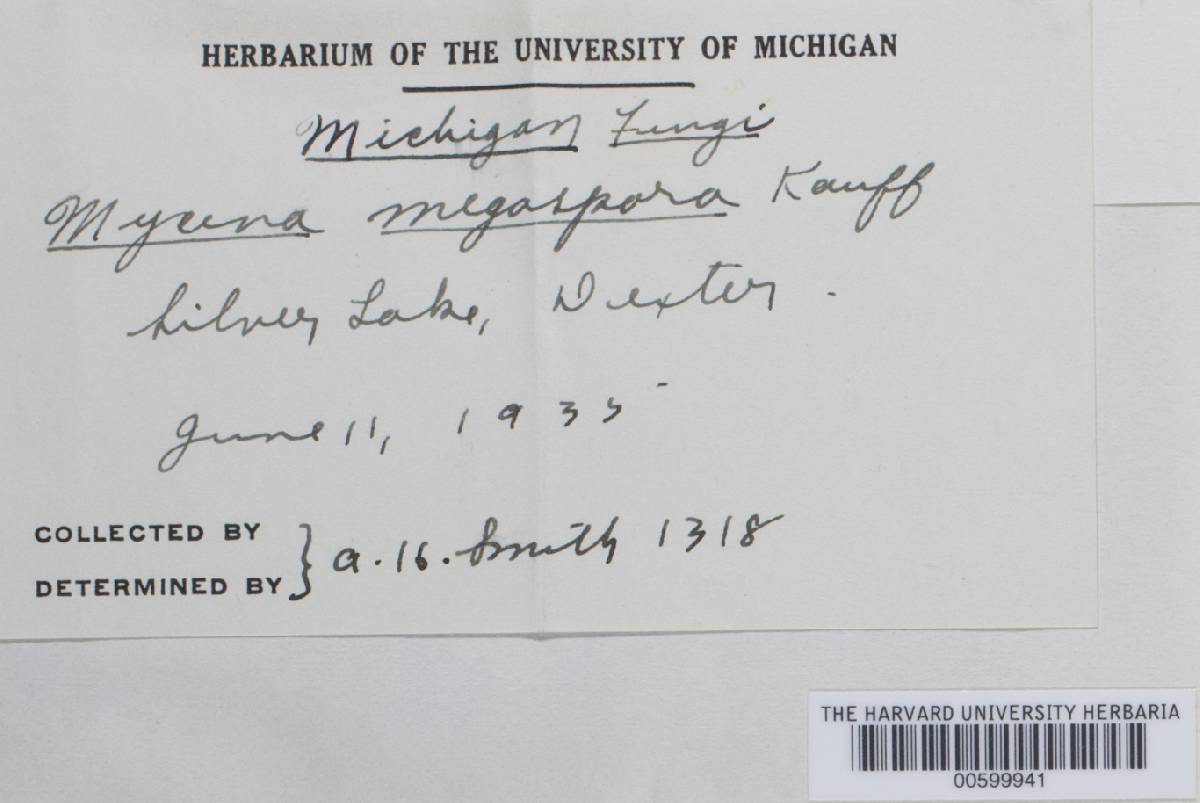 HERBARIUM OF THE UNIVERSITY OF MICHIGAN
Michigan Fungi
Mycena megaspora Kauff
Silver Lake, Dexter.
June 11, 1935
COLLECTED BY
DETERMINED BY } A. H. Smith 1318
THE HARVARD UNIVERSITY HERBARIA
00599941